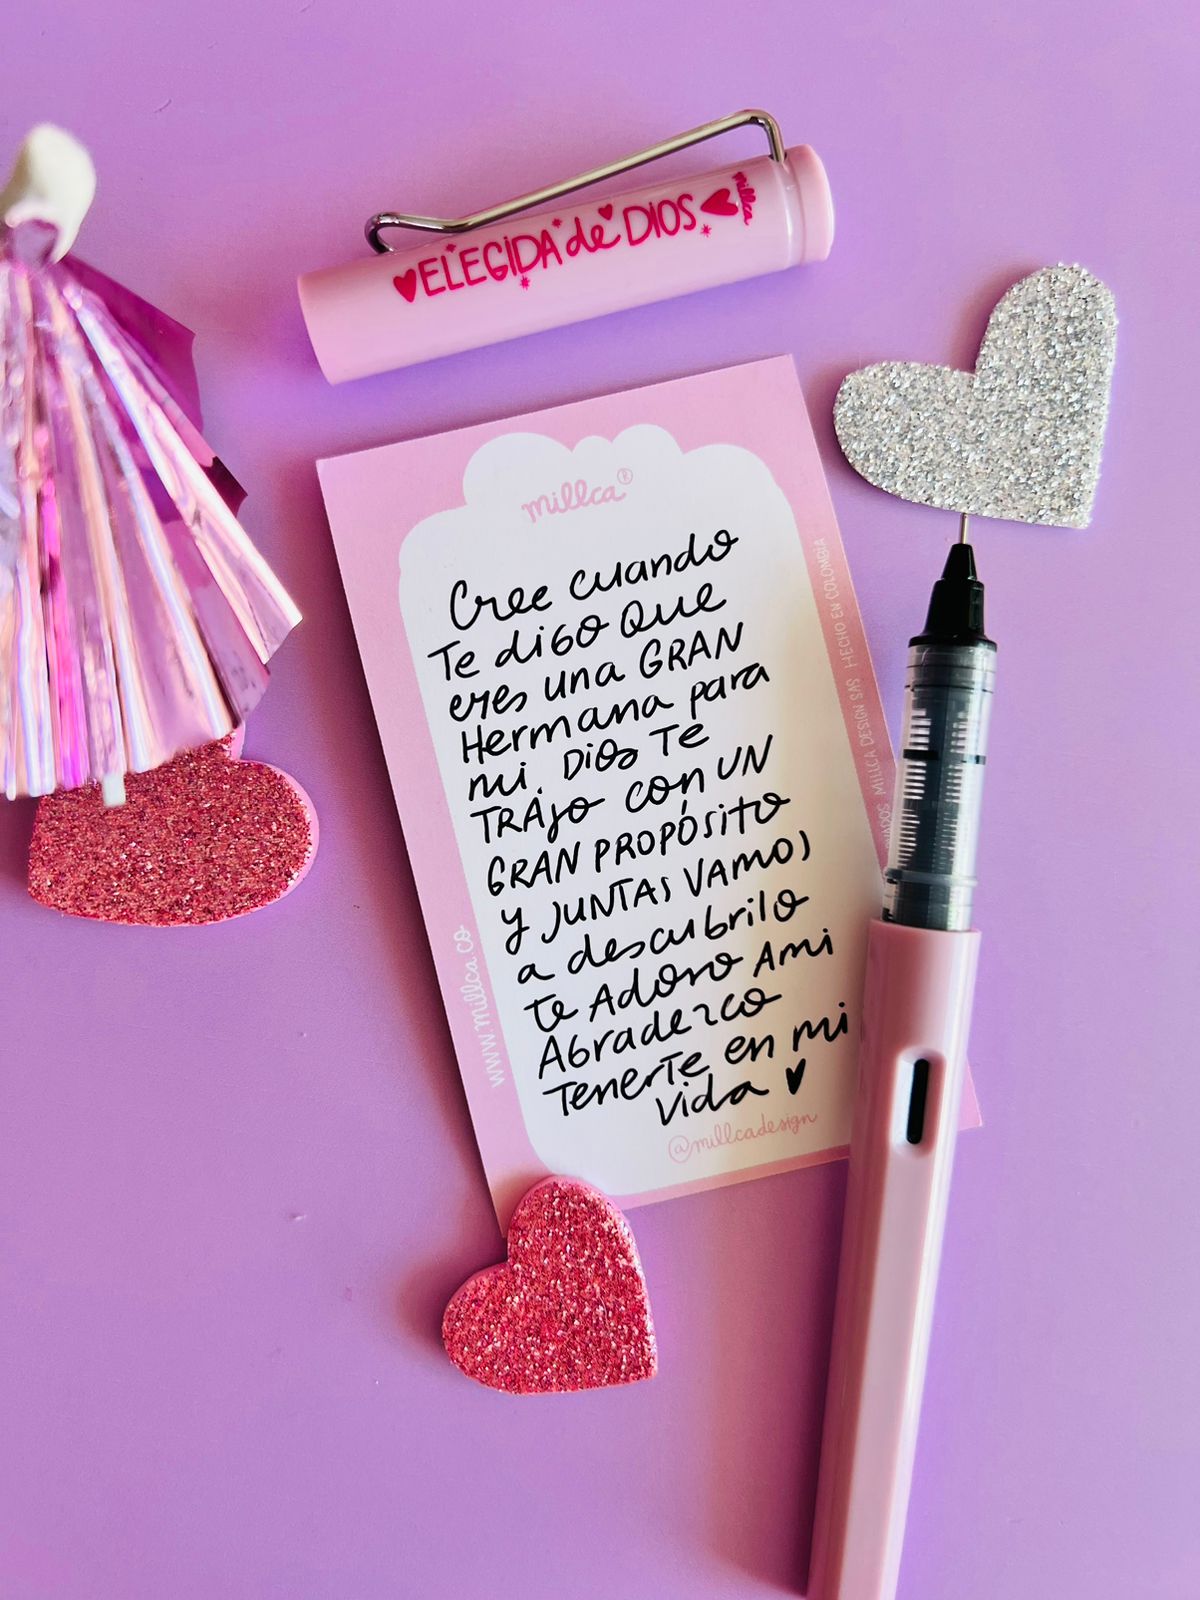 ELEGIDA de DIOS
millca
millca®
Cree cuando
Te digo que
eres una GRAN
Hermana para
mi. Dios Te
TRAJO con UN
GRAN PROPÓSITO
y JUNTAS VAMOS
a descubrilo
te Adoro Ami
Agradezco
Tenerte en mi
vida
@millcadesign
www.millca.co
MILLCA DESIGN SAS HECHO EN COLOMBIA